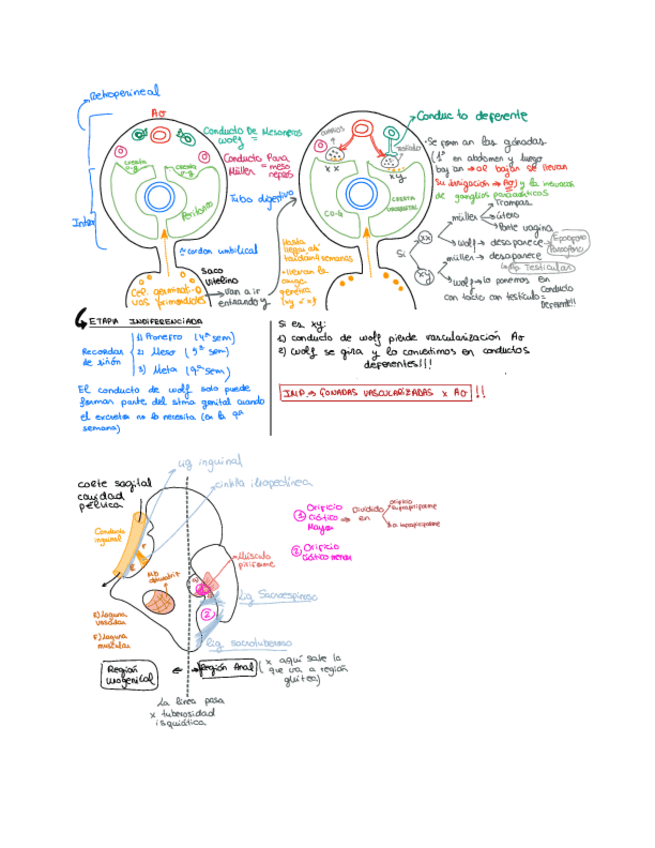 Retroperineal
Ao
Conducto De Mesonefros
Wolf =
Conducto Para
Müller = meso
nefros
Tubo digestivo
cresta
u-g
cresta
u-g
Peritoneo
Inter
≈cordon umbilical
Saco
Vitelino
Cel. germinati-
vas primordiales
van a ir
entrando y
Hasta
llegar ahí
tardan 4 semanas
• llevan la
carga
genética
(xy o xx)
Conducto deferente
ovarios
testículo
xx
xy
CU-G
cresta
urogenital
• Se forman las gónadas
(1º en abdomen y luego
bajan → al bajar se llevan
su irrigación → Ao) y la inervac
de ganglios paraaórticos
Si
xx
müller
Trompas
útero
Parte vagina
wolf → desaparece →
Epoóforo
Paraóforo
xy
müller → desaparece
Testicular
wolf → lo ponemos en
contacto con testículo =
conducto
Deferente!!
ETAPA INDIFERENCIADA
Recordar
de riñón
1) Pronefro (4ª sem)
2) Meso (5ª sem)
3) Meta (9ª sem)
El conducto de wolf solo puede
formar parte del stma genital cuando
el excretor no lo necesita (en la 9ª
semana)
Si es xy:
1) conducto de wolf pierde vascularización Ao
2) Wolf se gira y lo convertimos en conductos
deferentes!!!
IMP → GONADAS VASCULARIZADAS x Ao !!
corte sagital
cavidad
pélvica
lig inguinal
cintilla iliopectínea
Conducto
inguinal
F
E
Mb
obturatriz
E) laguna
vascular
F) laguna
muscular
1
2
Músculo
piriforme
Lig Sacroespinoso
Lig sacrotuberoso
① Orificio
ciático
Mayor
→ Dividido
en
orificio
suprapiriforme
o. infrapiriforme
② Orificio
ciático menor
Región
urogenital
Región Anal
(x aquí sale lo
que va a región
glútea)
La línea pasa
x tuberosidad
isquiática